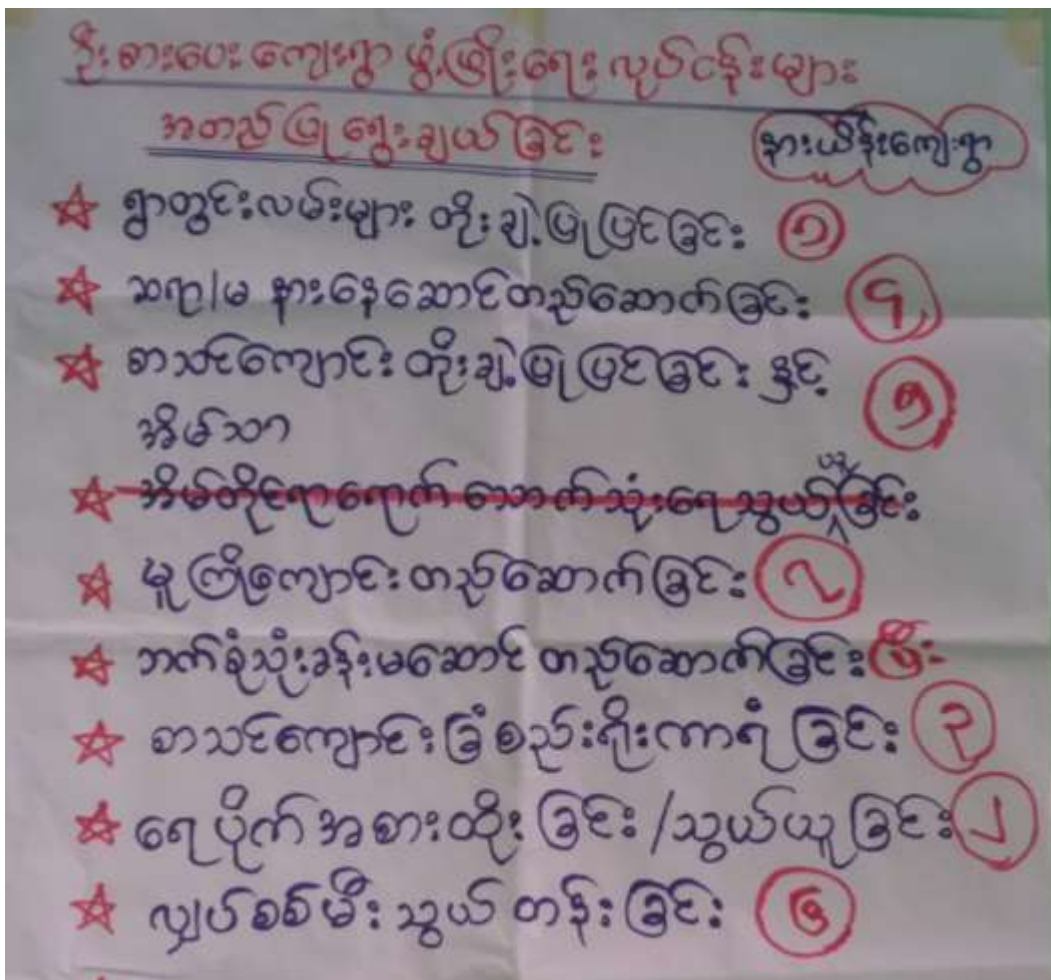 ဦးစားပေး ကျေးရွာ ဖွံ့ဖြိုးရေး လုပ်ငန်းများ
အတည်ပြု ရွေးချယ်ခြင်း
နားယိန်းကျေးရွာ
☆ ရွာတွင်းလမ်းများ တိုးချဲ့ပြုပြင်ခြင်း ၁
☆ ဆရာ/မ နားနေဆောင်တည်ဆောက်ခြင်း ၄
☆ စာသင်ကျောင်း တိုးချဲ့ပြုပြင်ခြင်း နှင့် ၅
အိမ်သာ
☆ အိမ်တိုင်ရာရောက် သောက်သုံးရေသွယ်ယူခြင်း
☆ မူကြိုကျောင်းတည်ဆောက်ခြင်း ၇
☆ ဘက်စုံသုံးခန်းမဆောင် တည်ဆောက်ခြင်း ပြီး
☆ စာသင်ကျောင်းခြံစည်းရိုးကာရံ ခြင်း ၃
☆ ရေပိုက် အစားထိုး ခြင်း /သွယ်ယူ ခြင်း ၂
☆ လျှပ်စစ်မီး သွယ်တန်း ခြင်း ၆